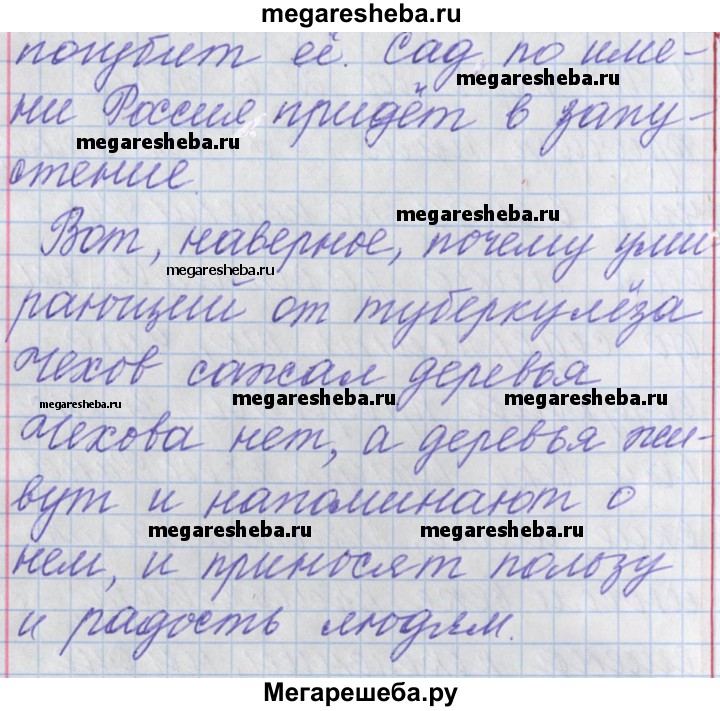 megaresheba.ru
погубит её. Сад по име-
megaresheba.ru
ни Россия придёт в запу-
megaresheba.ru
стение.
megaresheba.ru
Вот, наверное, почему уми
megaresheba.ru
рающий от туберкулёза
Чехов сажал деревья
megaresheba.ru megaresheba.ru megaresheba.ru
Чехова нет, а деревья жи-
вут и напоминают о
megaresheba.ru megaresheba.ru
нем, и приносят пользу
и радость людям.
Мегарешеба.ру